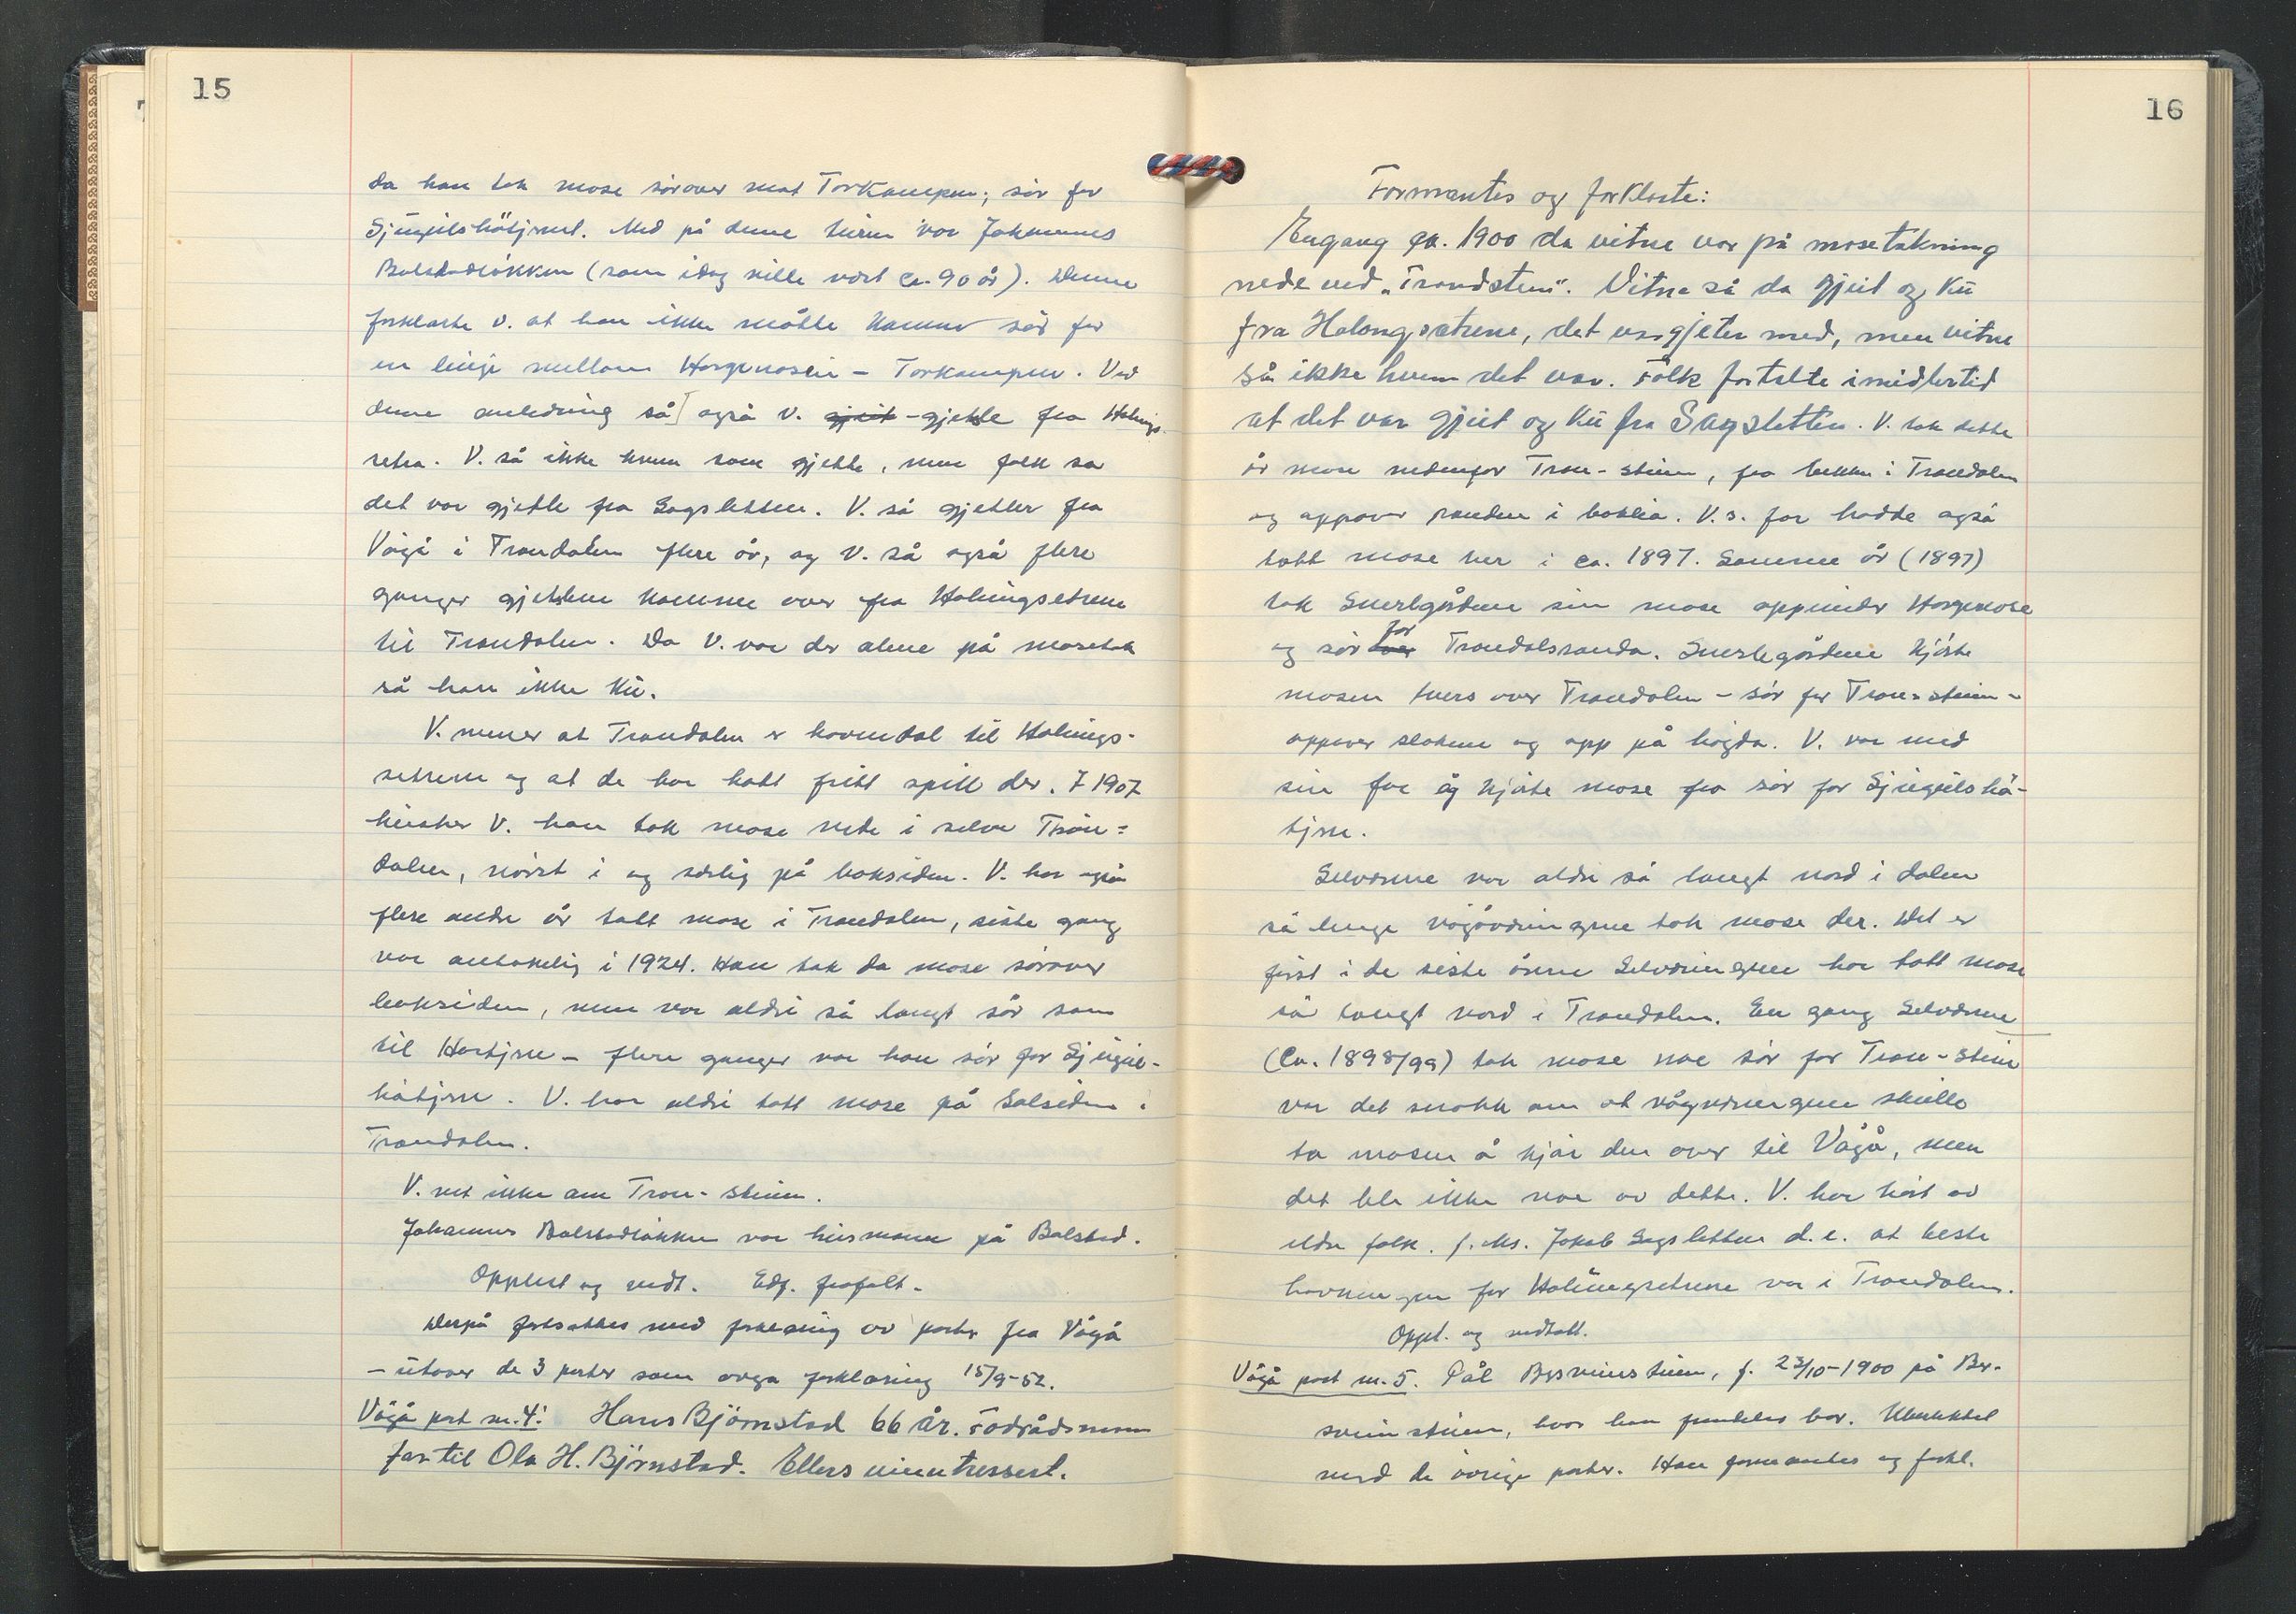 15
da han tok mose sørover mot Torkampen; sør for
Sjugulshötjønnet. Med på denne turen var Johannes
Bolstadløkken (som idag ville vært ca. 90 år). Denne
forklarte v. at han ikke måtte komme sør for
en linje mellom Horgenosin – Torkampen. Ved
denne anledning så også v. gjeit -gjetle fra Holungs-
setra. V. så ikke hvem som gjette, men folk sa
det var gjetle fra Sagsletten. V. så gjetler fra
Vågå i Trondalen flere år, og v. så også flere
ganger gjetslene komme over fra Holungsetrene
til Trondalen. Da v. var der alene på mosetak
så han ikke ku.
V. mener at Trondalen er havnedal til Holungs-
setrene og at de har hatt fritt spill der. I 1907
husker V. han tok mose nede i selve Tron=
dalen, nørst i og særlig på baksiden. V. har også
flere andre år tatt mose i Trondalen, siste gang
var antakelig i 1924. Han tok da mose sørover
baksiden, men var aldri så langt sør som
til Hortjønn – flere ganger var han sør for Sjugul-
håtjønn. V. har aldri tatt mose på Solsiden i
Trondalen.
V. vet ikke om Tron-steinen.
Johannes Bolstadløkken var husmann på Bolstad.
Opplest og vedt. Edf. frafalt.
Derpå fortsattes med forklaring av parter fra Vågå
– utover de 3 parter som avga forklaring 15/9-52.
Vågå part nr. 4: Hans Bjørnstad 66 år. Fodrådsmann
far til Ola H. Bjørnstad. Ellers uinntressert.
16
Formantes og forklarte:
Engang ca. 1900 da vitne var på mosetakning
nede ved „Trondsten". Vitne så da gjeit og ku
fra Holongsætrene, det var gjeter med, men vitne
så ikke hvem det var. Folk fortalte imidlertid
at det var gjeit og ku fra Sagsletten. V. tok dette
år mose nedenfor Tron-steinen, fra bekken i Trondalen
og oppover randen i baklia. V.s. far hadde også
tatt mose her i ca. 1897. Samme år (1897)
tok Snerlegårdene sin mose oppunder Horgenose
og sør over for Trondalsranda. Snerlegårdene kjørte
mosen tvers over Trondalen – sør for Tron-steinen –
oppover slokene og opp på høgda. V. var med
sin far og kjørte mose fra sør for Sjugulshå-
tjønn.
Selværne var aldri så langt nord i dalen
så lenge vågåværingene tok mose der. Det er
først i de siste årene Selværingene har tatt mose
så langt nord i Trondalen. En gang Selværne
(Ca. 1898/99) tok mose noe sør for Tron-steinen
var det snakk om at vågværingene skulle
ta mosen å kjøre den over til Vågå, men
det ble ikke noe av dette. V. har hørt av
eldre folk. f.eks. Jakob Sagsletten d.e. at beste
havningen for Holungsetrene var i Trondalen.
Oppl. og vedtatt.
Vågå part nr. 5. Pål Bersveinsteinen, f. 23/10-1900 på Ber-
sveinsteinen, hvor han fremdeles bor. Ubeslektet
med de øvrige parter. Han formantes og forkl.